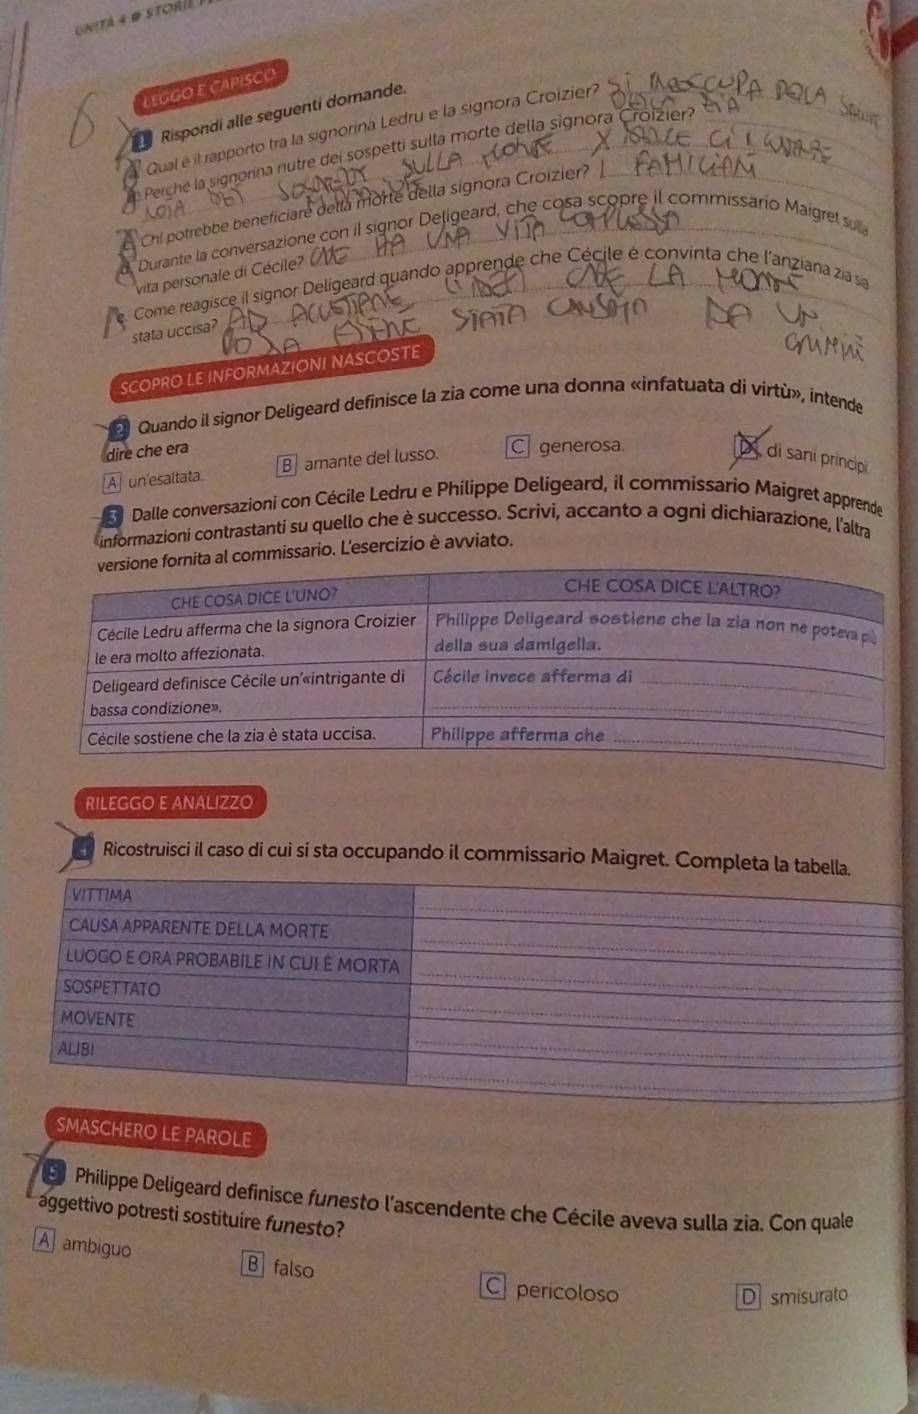 UNITÀ 4
LEGGO E CAPISCO
6
1 Rispondi alle seguenti domande.
Qual è il rapporto tra la signorina Ledru e la signora Croizier? SI
Perché la signorina nutre dei sospetti sulla morte della signora Croizier?
SULLA
Chi potrebbe beneficiare della morte della signora Croizier? I FAMILIARI
Durante la conversazione con il signor Deligeard, che cosa scopre il commissario Maigret sulla
vita personale di Cécile? CHE HA UNA VITA
e. Come reagisce il signor Deligeard quando apprende che Cécile è convinta che l'anziana zia sia
stata uccisa? AD CHE LA
STATA DA UN
SCOPRO LE INFORMAZIONI NASCOSTE
2 Quando il signor Deligeard definisce la zia come una donna «infatuata di virtù», intende
dire che era
A un'esaltata.
B amante del lusso.
C generosa.
D di sani principi
3 Dalle conversazioni con Cécile Ledru e Philippe Deligeard, il commissario Maigret apprende
informazioni contrastanti su quello che è successo. Scrivi, accanto a ogni dichiarazione, l'altra
versione fornita al commissario. L'esercizio è avviato.
CHE COSA DICE L'UNO?
CHE COSA DICE L'ALTRO?
Cécile Ledru afferma che la signora Croizier
le era molto affezionata.
Philippe Deligeard sostiene che la zia non ne poteva più
della sua damigella.
Deligeard definisce Cécile un'«intrigante di
bassa condizione».
Cécile invece afferma di
Cécile sostiene che la zia è stata uccisa.
Philippe afferma che
RILEGGO E ANALIZZO
4 Ricostruisci il caso di cui si sta occupando il commissario Maigret. Completa la tabella.
VITTIMA
CAUSA APPARENTE DELLA MORTE
LUOGO E ORA PROBABILE IN CUI È MORTA
SOSPETTATO
MOVENTE
ALIBI
SMASCHERO LE PAROLE
5 Philippe Deligeard definisce funesto l'ascendente che Cécile aveva sulla zia. Con quale
aggettivo potresti sostituire funesto?
A ambiguo
B falso
C pericoloso
D smisurato